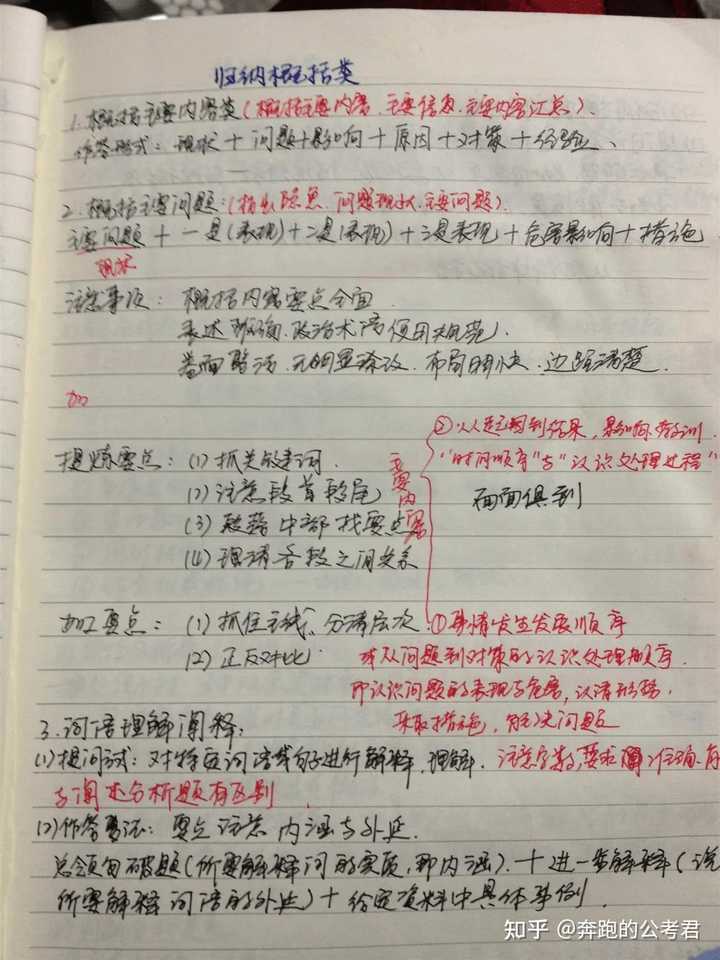 归纳概括类
1.概括主要内容类(概括主要内容、主要信息、主要内容汇总).
作答形式：现状+问题+影响+原因+对策+经验、
2.概括主要问题：(指出 问题现状、主要问题).
主要问题+一是(表现)+二是(表现)+三是表现+危害影响+措施
现状
注意事项：概括内容要点全面
表述准确、政治术语使用规范.
卷面整洁、无明显涂改、布局明快、边距清楚.
如
②从起因到结果，影响、教训.
提炼要点：(1)抓关键词.
"时间顺序"与"认识处理过程"
(2)注意段首段尾
主要内容
面面俱到
(3)段落中部找要点
(4)理清各段之间关系
加工要点：(1)抓住主线、分清层次.
①事情发生发展顺序
(2)正反对比
或从问题到对策的认识处理顺序.
即认识问题的表现与危害，认清形势，
采取措施，解决问题
3.词语理解阐释：
(1)提问式：对特定词语或句子进行解释，理解.
注意字数，要求 准确.
与阐述分析题有区别
(2)作答要注：要点注意内涵与外延.
总领句破题(所要解释词的实质，即内涵).+进一步解释(说
所要解释词语的外延)+给定资料中具体事例.
知乎 @奔跑的公考君